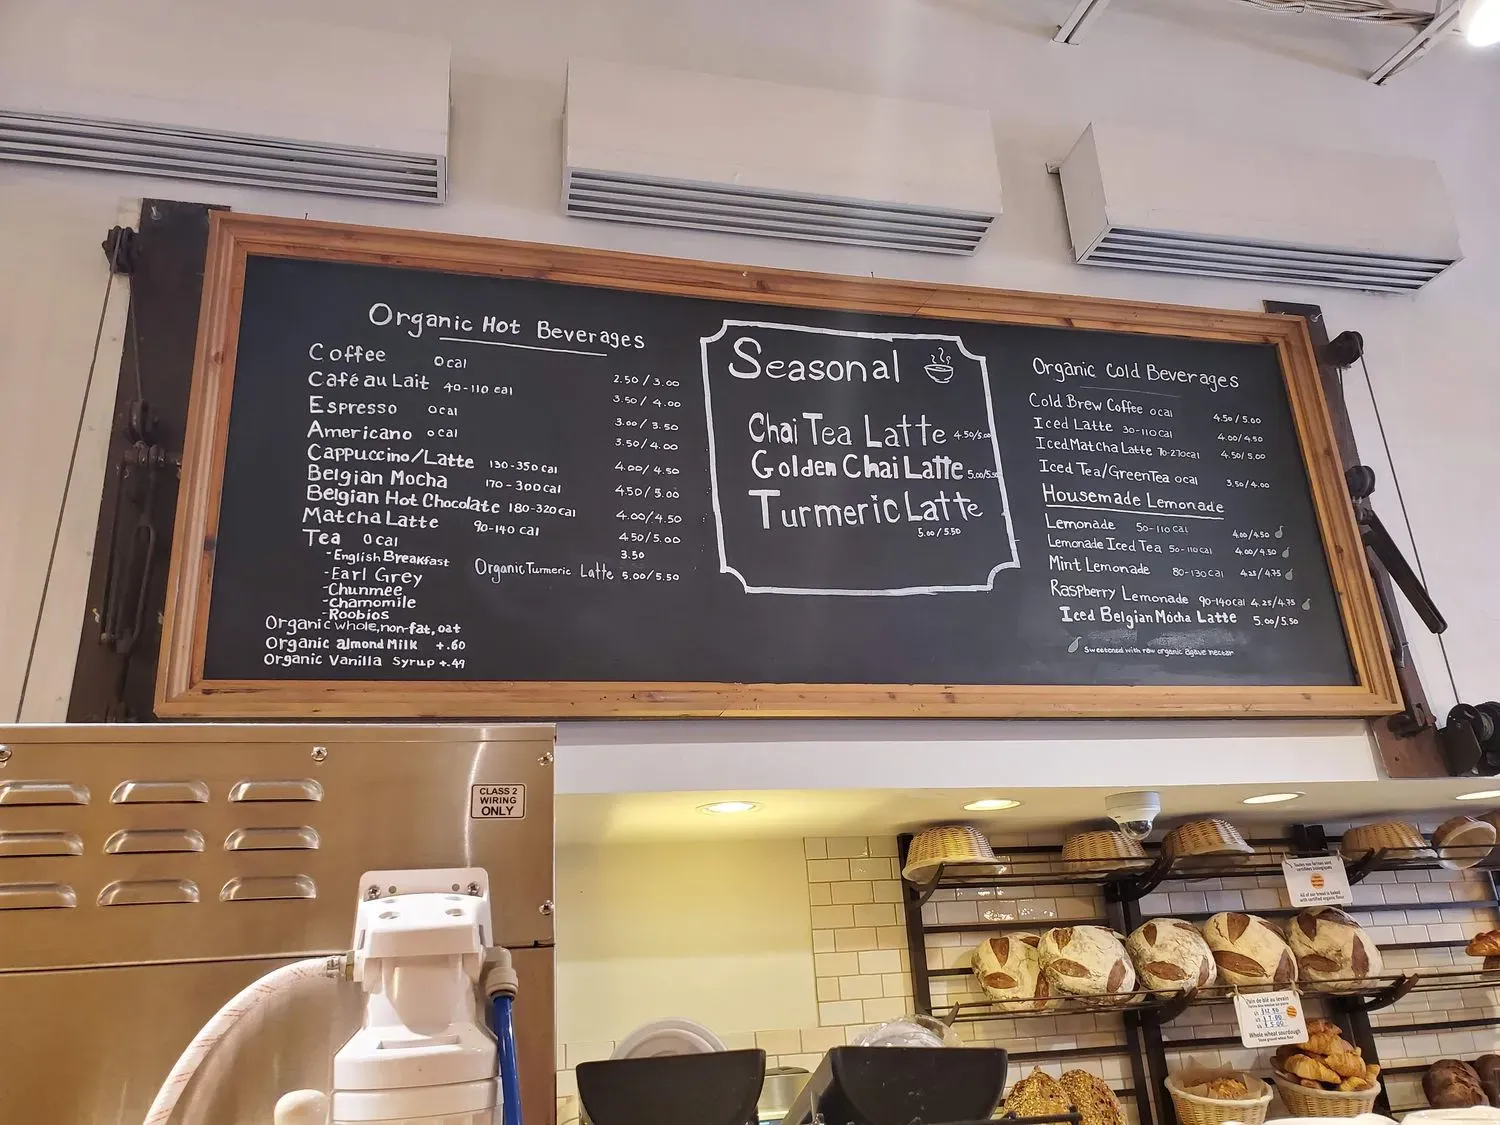 Organic Hot Beverages
Coffee 0 cal 2.50 / 3.00
Café au Lait 40-110 cal 3.50 / 4.00
Espresso 0 cal 3.00 / 3.50
Americano 0 cal 3.50 / 4.00
Cappuccino/Latte 130-350 cal 4.00/4.50
Belgian Mocha 170-300 cal 4.50/5.00
Belgian Hot Chocolate 180-320 cal 4.00/4.50
Matcha Latte 90-140 cal 4.50/5.00
Tea 0 cal 3.50
-English Breakfast
-Earl Grey
-Chunmee
-Chamomile
-Roobios
Organic Turmeric Latte 5.00/5.50
Organic whole, non-fat, oat
Organic almond Milk +.60
Organic Vanilla Syrup +.49
Seasonal
Chai Tea Latte 4.50/5.00
Golden Chai Latte 5.00/5.50
Turmeric Latte
5.00/5.50
Organic Cold Beverages
Cold Brew Coffee 0 cal 4.50/5.00
Iced Latte 30-110 cal 4.00/4.50
Iced Matcha Latte 70-270 cal 4.50/5.00
Iced Tea/Green Tea 0 cal 3.50/4.00
Housemade Lemonade
Lemonade 50-110 cal 4.00/4.50
Lemonade Iced Tea 50-110 cal 4.00/4.50
Mint Lemonade 80-130 cal 4.25/4.75
Raspberry Lemonade 90-140 cal 4.25/4.75
Iced Belgian Mocha Latte 5.00/5.50
Sweetened with raw organic agave nectar
CLASS 2
WIRING
ONLY
All of our bread is baked
with certified organic flour
Pain de blé au levain
Whole wheat sourdough